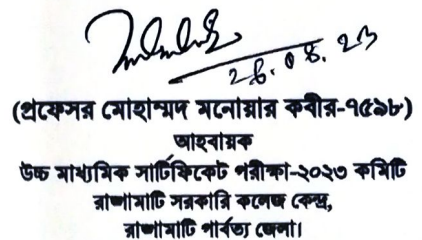 ২৪.০৪.২৩
(প্রফেসর মোহাম্মদ মনোয়ার কবীর-৭৫৯৮)
আহবায়ক
উচ্চ মাধ্যমিক সার্টিফিকেট পরীক্ষা-২০২৩ কমিটি
রাঙ্গামাটি সরকারি কলেজ কেন্দ্র,
রাঙ্গামাটি পার্বত্য জেলা।